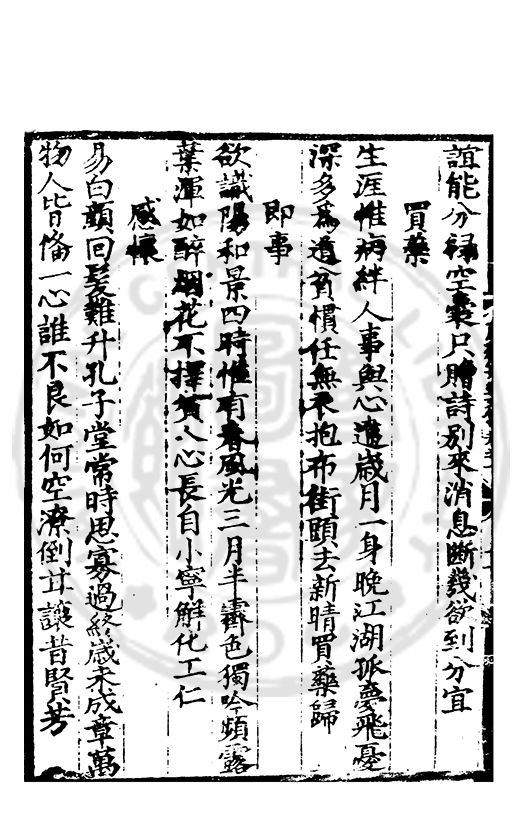 誼能分綠空囊只贈詩别來消息斷幾欲到分宜
買藥
生涯惟病絆人事與心違歲月一身晚江湖孤夢飛憂
深多為道貧慣任無衣抱布街頭去新晴買藥歸
即事
欲識陽和景四時惟有春風光三月半霽色獨吟頻露
葉渾如醉烟花不擇貧人心長自小寧解化工仁
感懷
易白顔回髮難升孔子堂常時思寡過終歲未成章萬
物人皆偹一心誰不良如何空潦倒甘讓昔賢芳